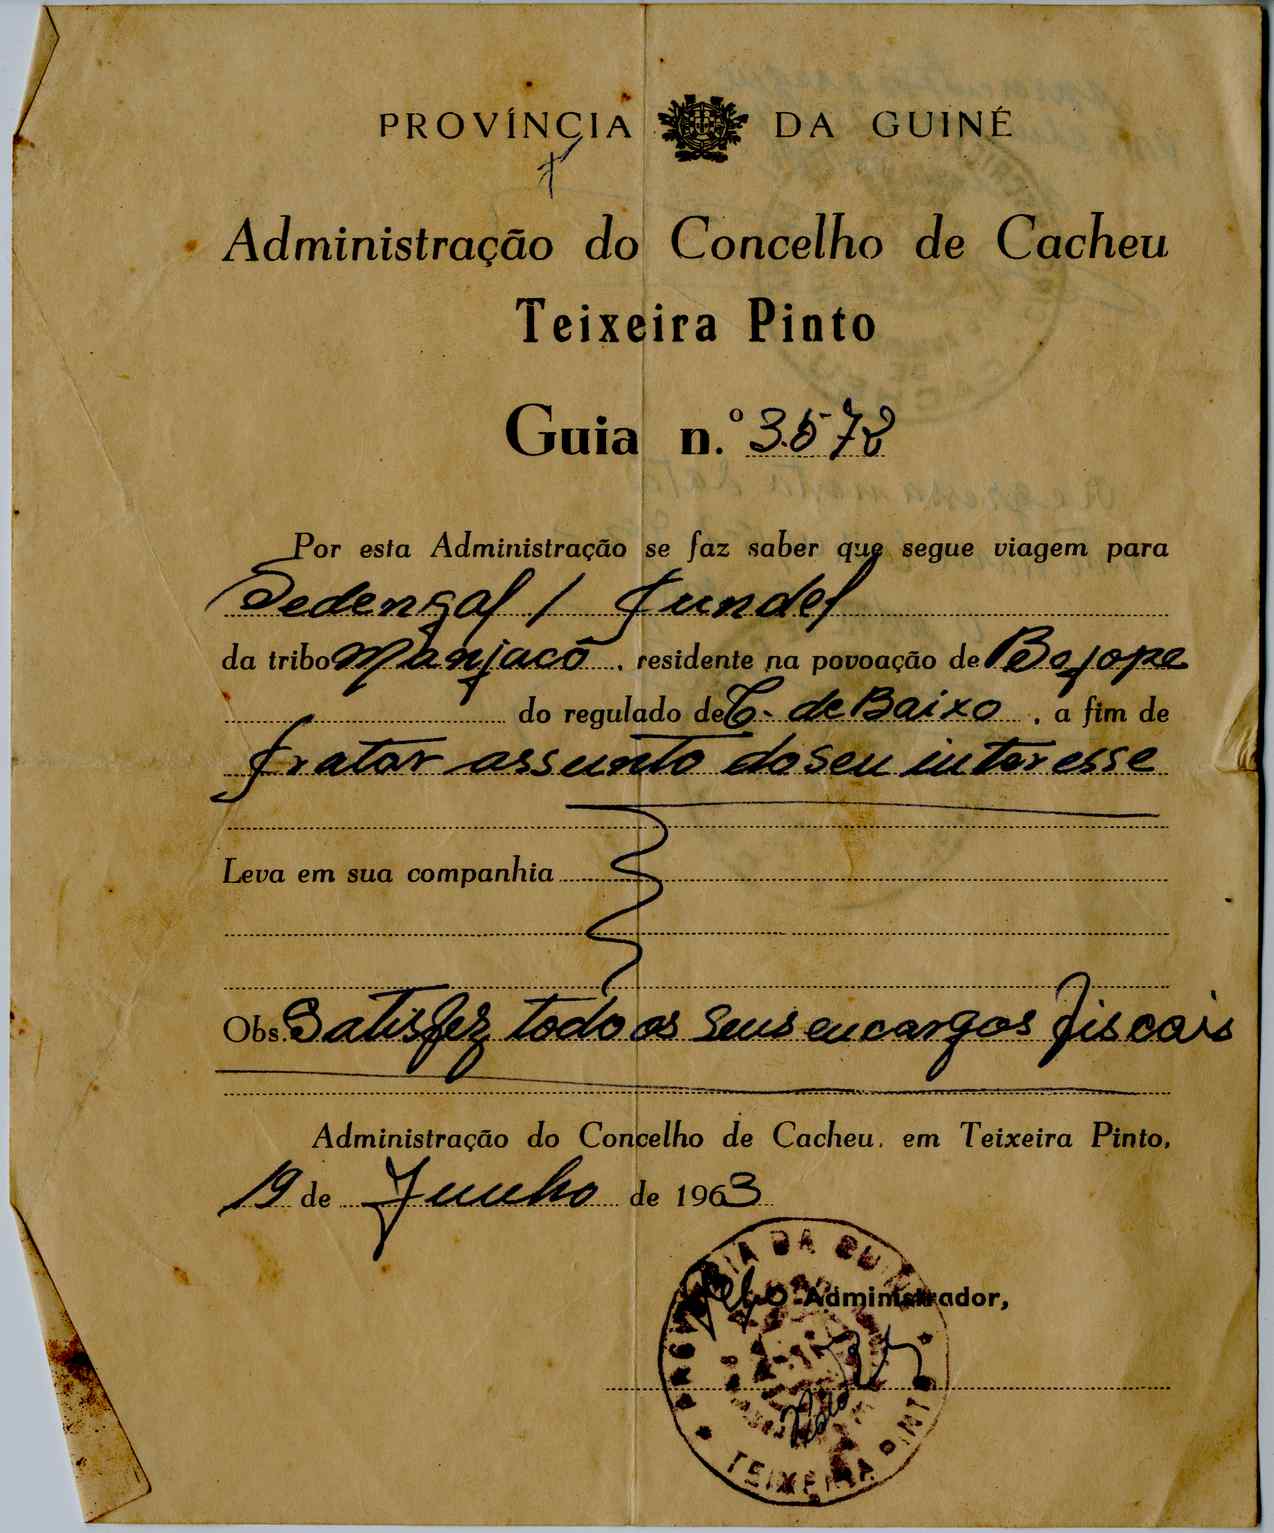 PROVÍNCIA DA GUINÉ
Administração do Concelho de Cacheu
Teixeira Pinto
Guia n.º 3.578
Por esta Administração se faz saber que segue viagem para
Sedengal / Jundef
da tribo Manjaco, residente na povoação de Bajope
do regulado de C. de Baixo, a fim de
tratar assunto do seu interesse
Leva em sua companhia
Obs. Satisfez todo os seus encargos fiscais
Administração do Concelho de Cacheu, em Teixeira Pinto,
19 de Junho de 1963
Pelo O Administrador,
PROVÍNCIA DA GUINÉ
TEIXEIRA PINTO